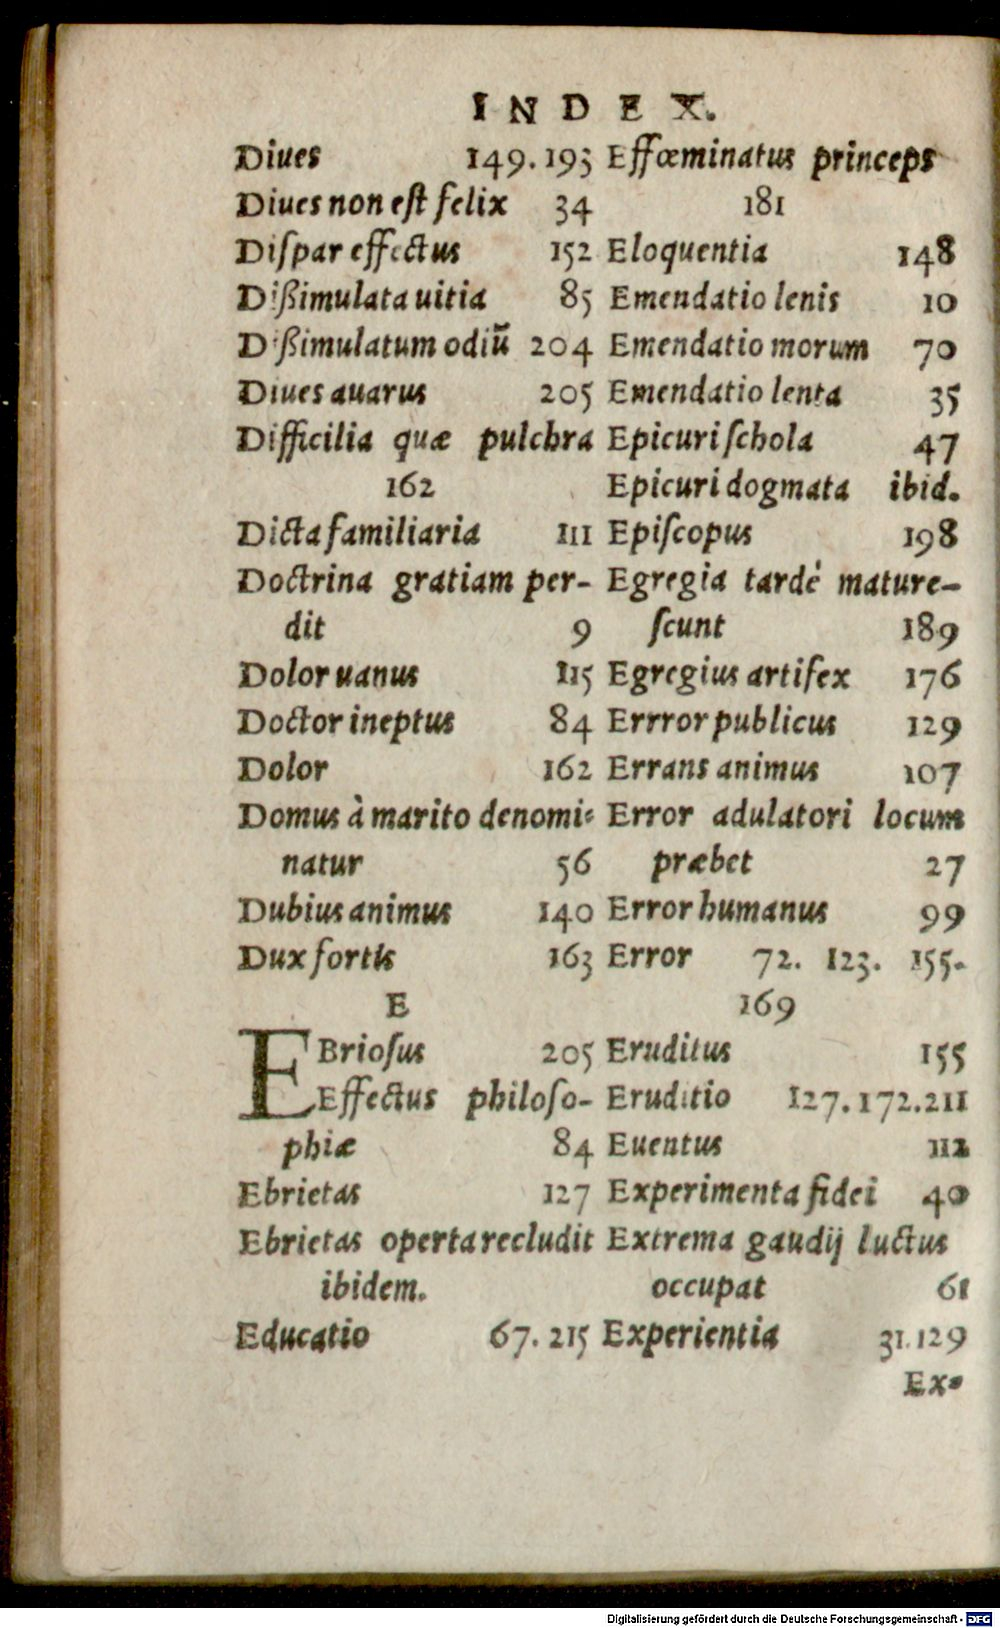 INDEX.
Diues 149.193
Diues non est felix 34
Diſpar effectus 152
Dißimulata uitia 85
Dißimulatum odiũ 204
Diues auarus 205
Difficilia quæ pulchra
162
Dicta familiaria 111
Doctrina gratiam per-
dit 9
Dolor uanus 115
Doctor ineptus 84
Dolor 162
Domus à marito denomi-
natur 56
Dubius animus 140
Dux fortis 163
E
EBrioſus 205
Effectus philoſo-
phiæ 84
Ebrietas 127
Ebrietas operta recludit
ibidem.
Educatio 67. 215
Effœminatus princeps
181
Eloquentia 148
Emendatio lenis 10
Emendatio morum 70
Emendatio lenta 35
Epicuri ſchola 47
Epicuri dogmata ibid.
Epiſcopus 198
Egregia tardè mature-
ſcunt 189
Egregius artifex 176
Errror publicus 129
Errans animus 107
Error adulatori locum
præbet 27
Error humanus 99
Error 72. 123. 155.
169
Eruditus 155
Eruditio 127.172.211
Euentus 112
Experimenta fidei 40
Extrema gaudij luctus
occupat 61
Experientia 31.129
Ex-
Digitalisierung gefördert durch die Deutsche Forschungsgemeinschaft - DFG